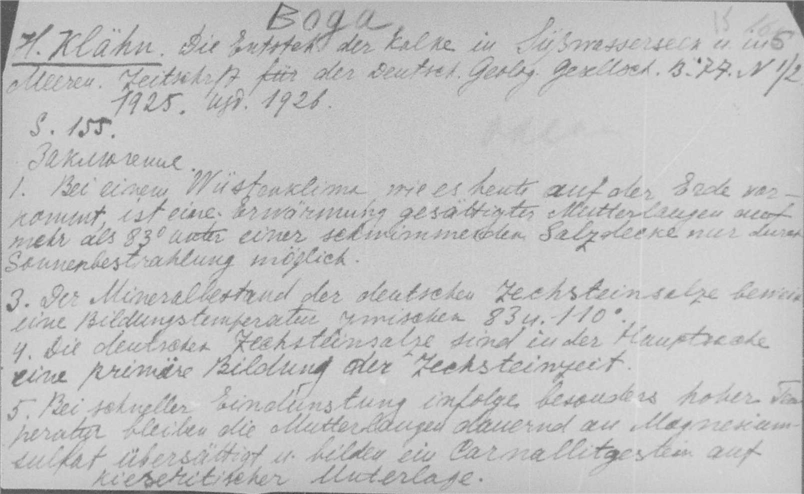 Вода
H. Klähn. Die Entsteh. der Kalke in Süßwasserseen u. in
Meeren. Zeitschrft für der Deutsch. Geolog. Gesellsch. B. 77. N 1/2
1925. Ujd. 1926.
S. 155.
Заключение.
1. Bei einem Wüstenklima wie es heute auf der Erde vor-
kommt, ist eine Erwärmung gesättigter Mutterlaugen auf
mehr als 83° unter einer schwimmenden Salzdecke nur durch
Sonnenbestrahlung möglich.
3. Der Mineralbestand der deutschen Zechsteinsalze beweis
eine Bildungstemperatur zwischen 83 u. 110°.
4. Die deutschen Zechsteinsalze sind in der Hauptsache
eine primäre Bildung der Zechsteinzeit.
5. Bei schneller Eindunstung infolge besonders hoher Tem
peratur bleiben die Mutterlaugen dauernd an Magnesium-
sulfat übersättigt u. bilden ein Carnallitgestein auf
kieseritischer Unterlage.